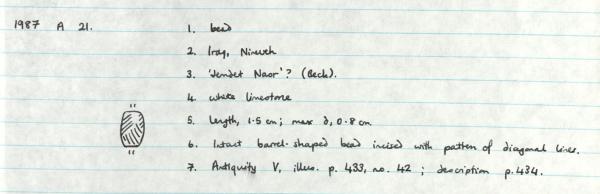 1987 A 21.
1. bead
2. Iraq, Nineveh
3. 'Jemdet Nasr'? (Beck).
4. white limestone
5. length, 1.5 cm; max d, 0.8 cm
6. Intact barrel-shaped bead incised with pattern of diagonal lines.
7. Antiquity V, illus. p. 433, no. 42; description p. 434.